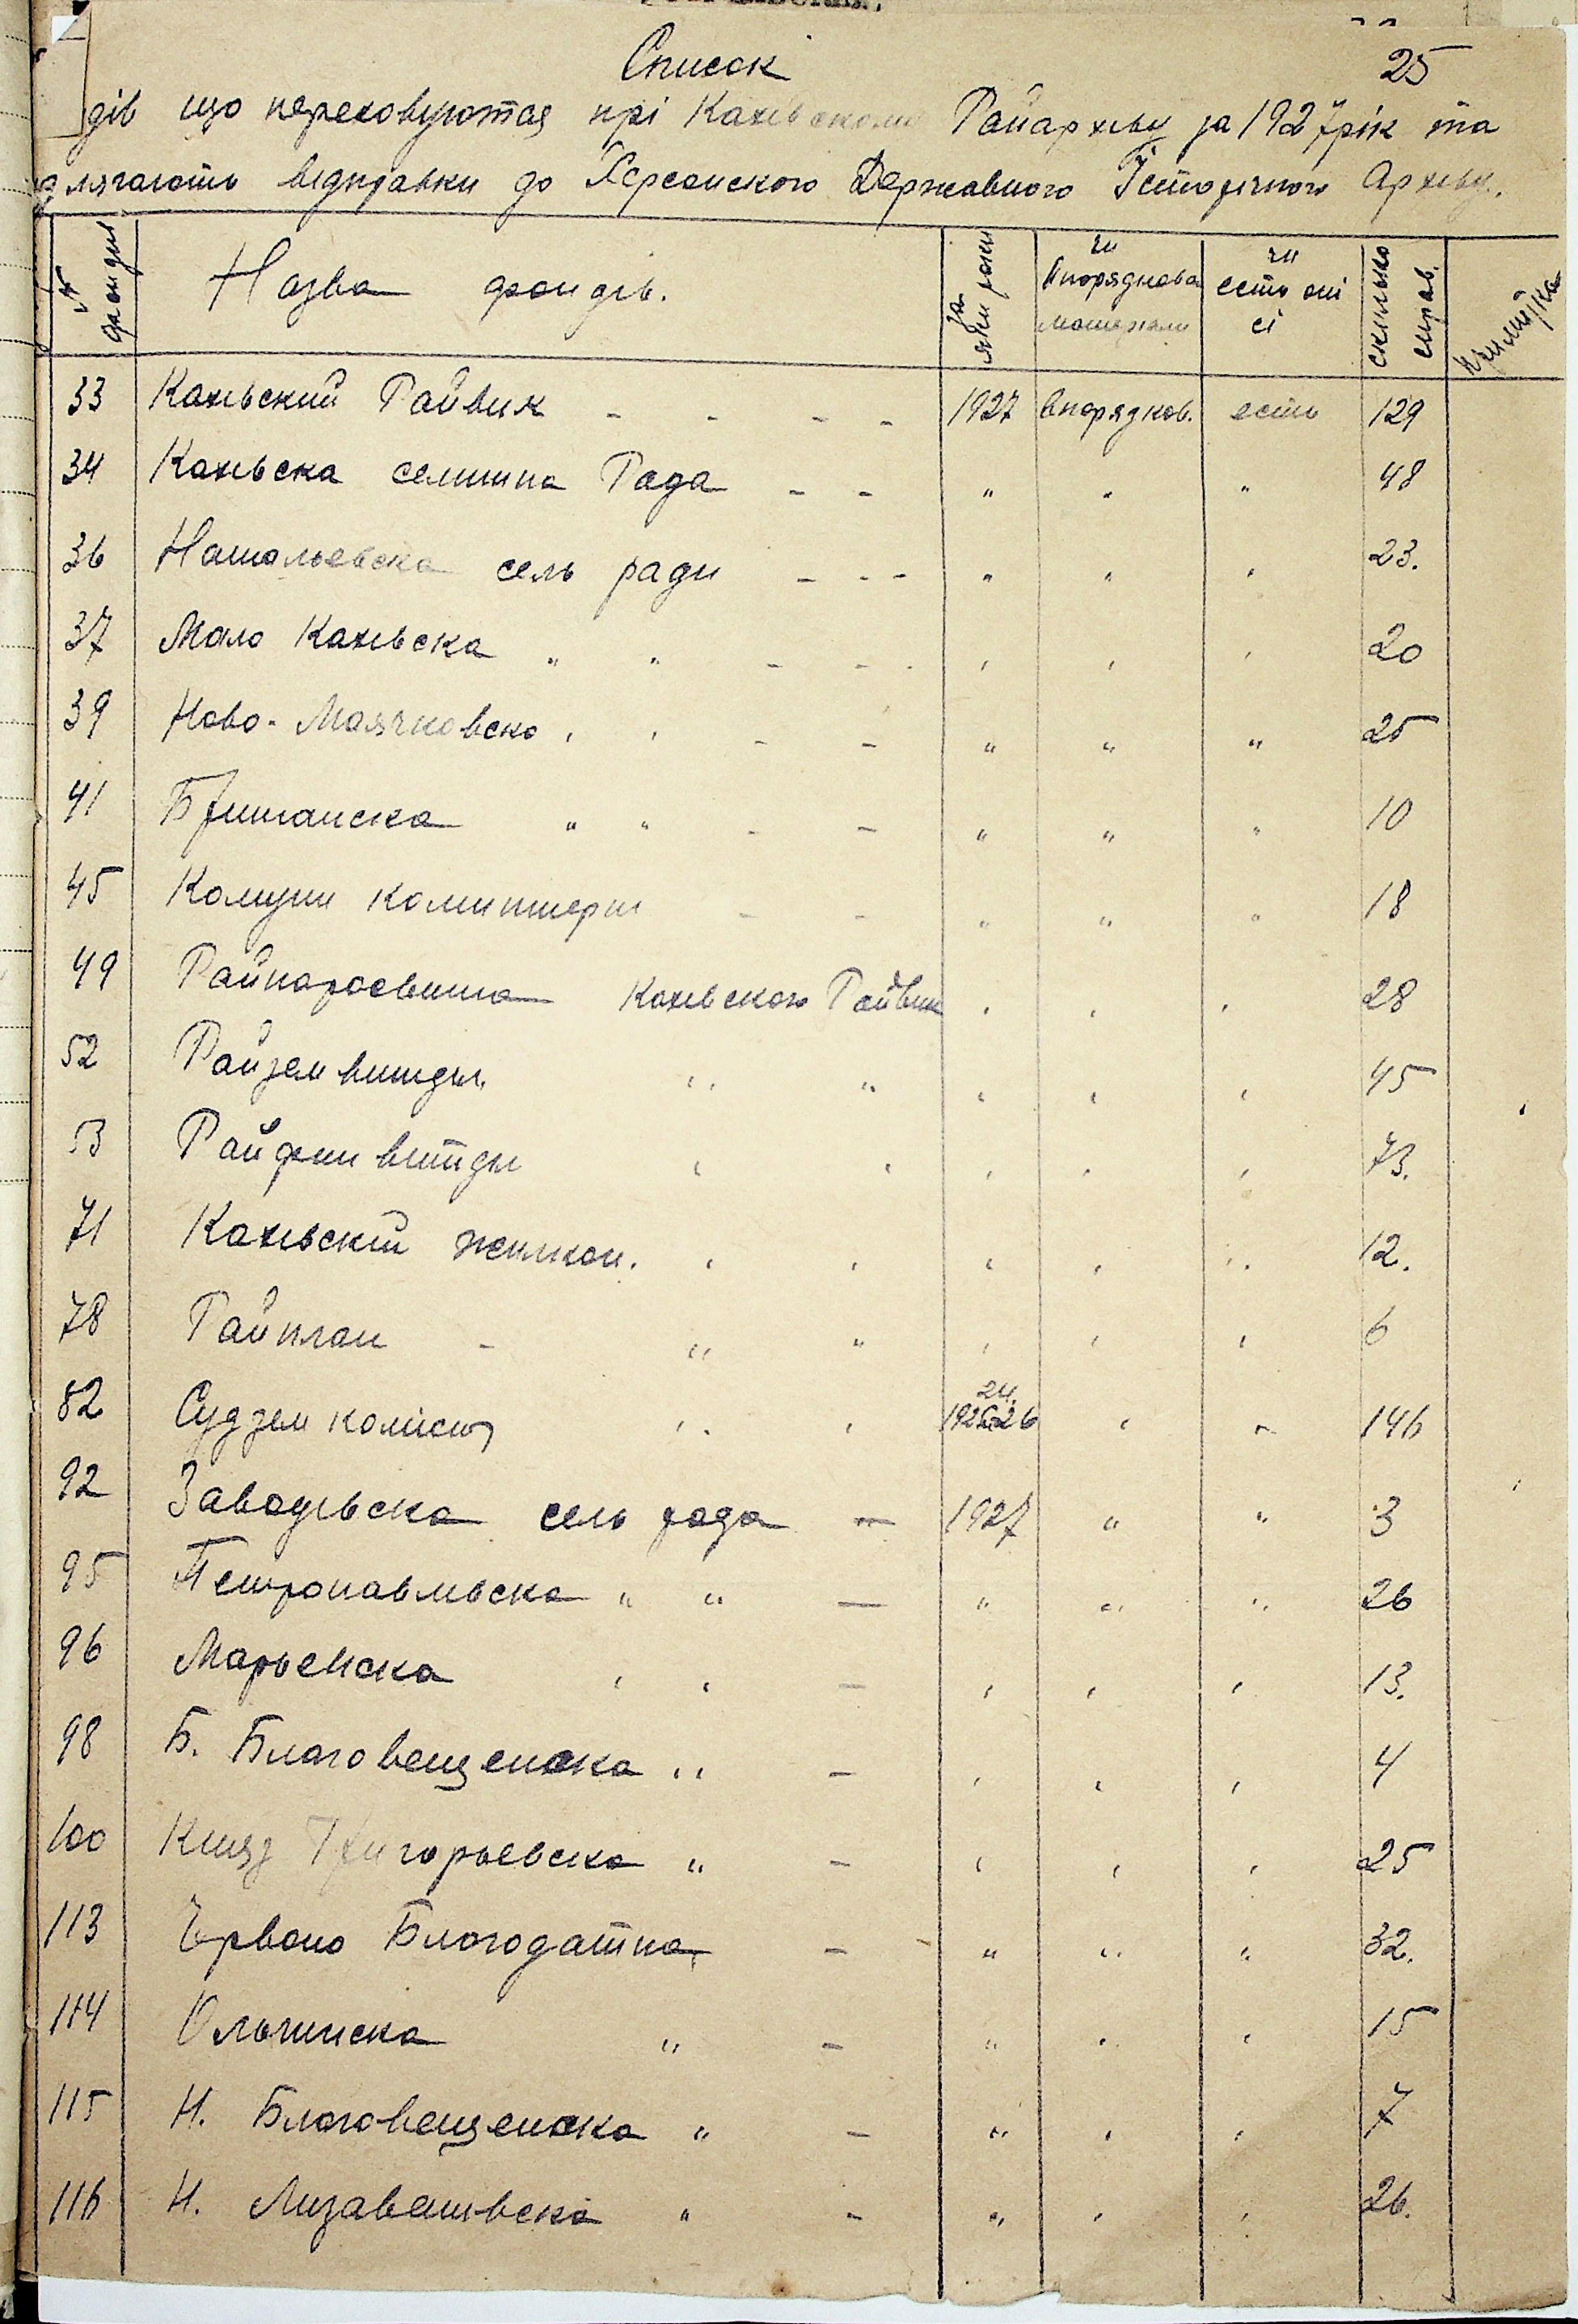 Список 25
дів що переховуются прі Кахівскому Райархіву за 1927 рік та
длягають відправки до Херсонского Державного Історичного Архіву.
№ фондів Назва фондів. за яки роки чи впорядкова матеріали чи есть опі сі скілько справ. примітка
33 Кахівский Райвик - - - - 1927 впорядков. есть 129
34 Кахівска селищна Рада - - " " " 48
36 Натальевска сель ради - - - " " " 23.
37 Мало Кахівска " " - - - " " " 20
39 Ново-Маячковска " " - - " " " 25
41 Британска " " - - " " " 10
45 Комуни коминтерн - - " " " 18
49 Райнаросвита Кахівского Райвик " " " 28
52 Райземвиддил " " " " " 45
53 Райфинвиддил " " " " " 73.
71 Кахівский жилкоп. " " " " " 12.
78 Райплан - " " " " " 6
82 Судземкомісія " " 24, 1925-26 " " 146
92 Заводівска сель рада - 1927 " " 3
95 Петропавливска " " - " " " 26
96 Марьенска " " - " " " 13.
98 Б. Благовещенска " - " " " 4
100 Княз Григорьевска " - " " " 25
113 Червоно Благодатна - " " " 32.
114 Ольгинска " - " " " 15
115 Н. Благовещенска " - " " " 7
116 Н. Лизаветівска " - " " " 26.